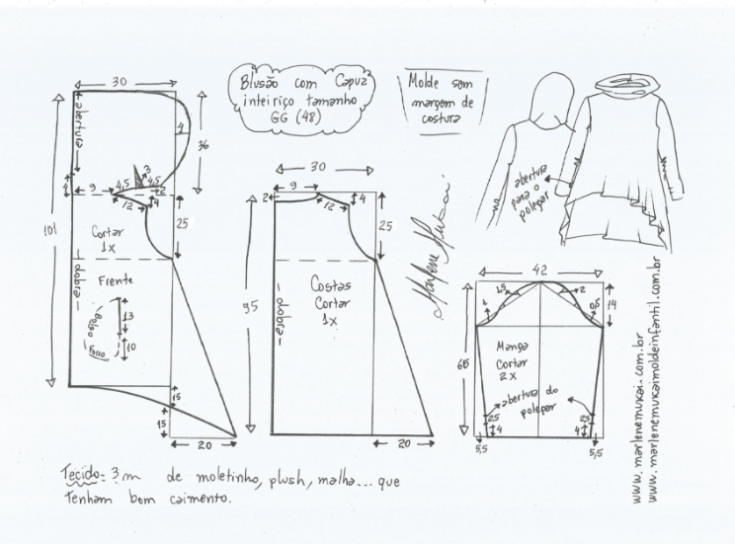 Blusão com Capuz
inteiriço tamanho
GG (48)
Molde sem
margem de
costura
30
abertura
4
36
3
4,5
4,5
9
2
4
12
4
25
101
Cortar
1x
dobra
Frente
Bolso
Forro
13
10
15
15
20
30
9
2
4
12
25
95
Costas
Cortar
1x
dobra
20
Marlene Mukai
abertura
para o
polegar
42
1,5
2
1
0,5
14
68
Manga
Cortar
2x
abertura do
polegar
2,5
2,5
4
4
5,5
5,5
www.marlenemukai.com.br
www.marlenemukaimoldeinfantil.com.br
Tecido: 3m de moletinho, plush, malha... que
tenham bom caimento.